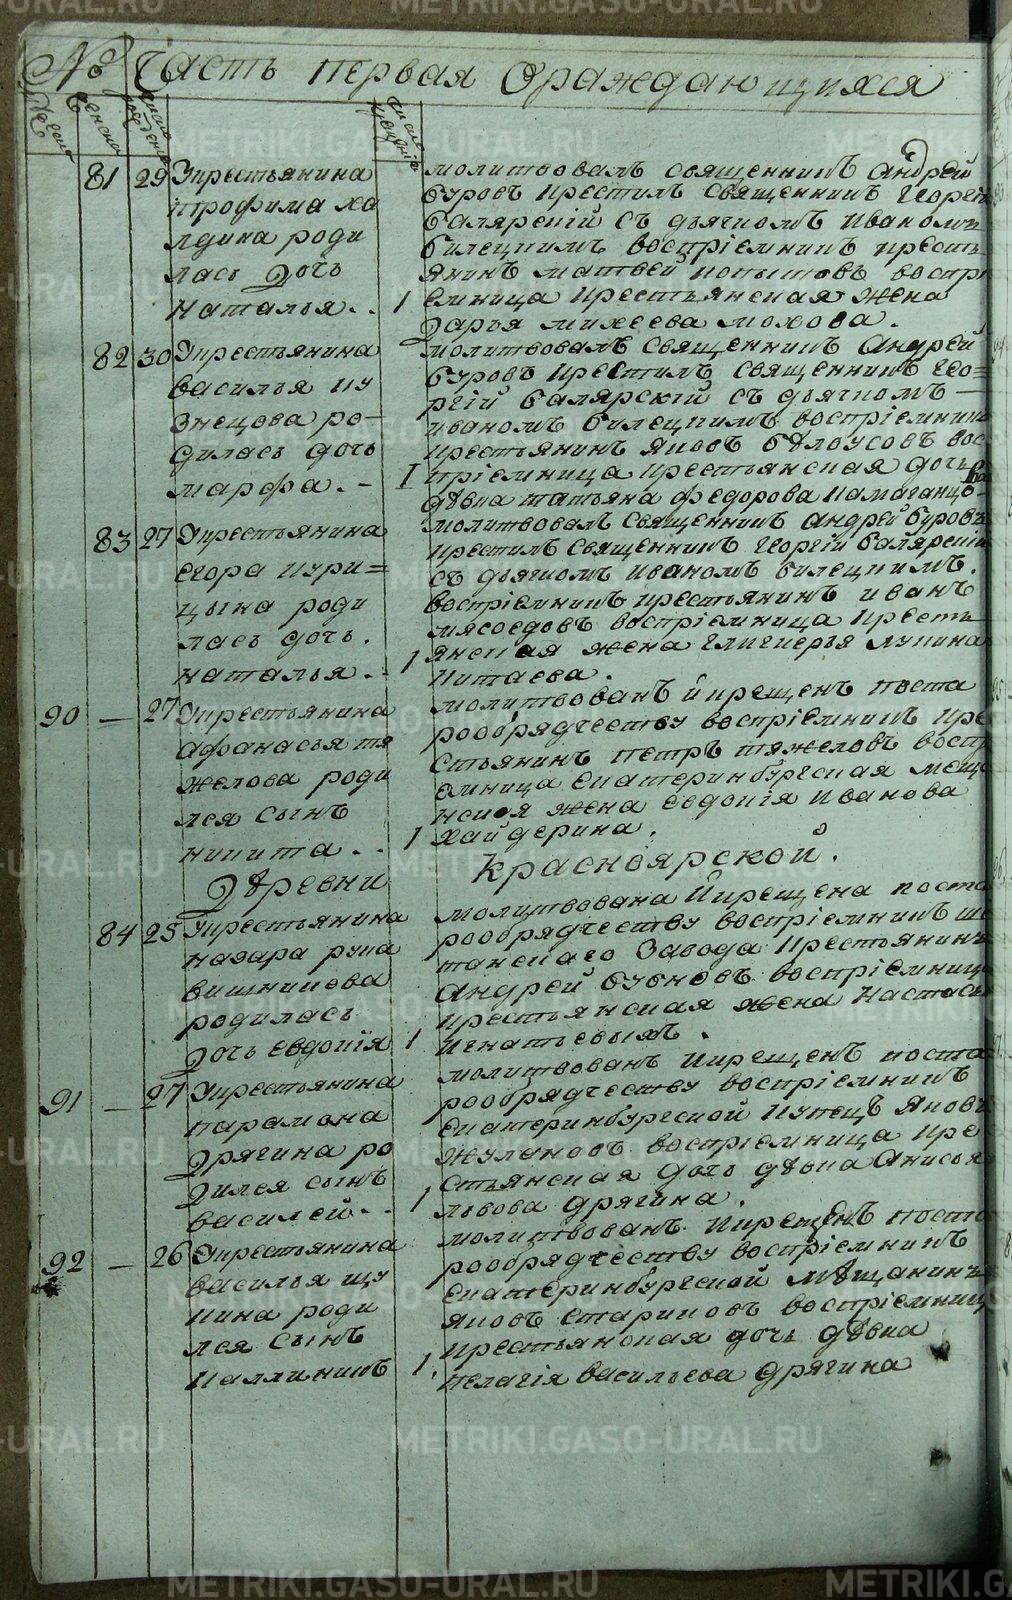 № Часть первая О раждающихся
мужеска
женска
число рождения
число крещения
81 29 Укрестьянина
трофима ха
лдина роди
лась Дочь
Наталья.. 1
молитвовалъ священникъ Андрей
буровъ крестилъ священникъ Георгій
балярскій съ дьячкомъ иваномъ
билецкимъ воспріемникъ кресть
янинъ матвей копытовъ воспрі
емница крестьянская жена
Дарья михеева мохова.
82 30 Укрестьянина
василья ку
знецова ро-
дилась дочь
марфа.- 1
молитвовалъ священникъ Андрей
буровъ крестилъ священникъ Гео=
ргій балярскій съ дьячкомъ —
иваномъ билецкимъ воспріемникъ
крестьянинъ яковъ бѣлоусовъ вос
пріемница крестьянская дочь
дѣвка татьяна федорова камаганцова
83 27 Укрестьянина
егора кури=
цына роди
лась дочь.
наталья.. 1
молитвовалъ священникъ андрей буровъ
крестилъ священникъ георгій балярскій
съ дьячкомъ иваномъ билецкимъ.
воспріемникъ крестьянинъ иванъ
мясоедовъ воспріемница кресть
янская жена гликерья лукина
китаева.
90 — 27 Укрестьянина
афанасья тя
желова роди
лся сынъ
никита.. 1
молитвованъ и крещенъ поста
рообрядчеству воспріемникъ кре
стьянинъ петръ тяжеловъ воспрі
емница екатеринбургская меща
нская жена евдокія иванова
хайдерина.
Дѣревни Красноярской.
84 25 Укрестьянина
назара рука
вишникова
родилась
Дочь евдокія 1
молитвована Икрещена поста
рообрядчеству воспріемникъ ша
танскаго Завода крестьянинъ
Андрей бубновъ воспріемница
крестьянская жена Настасья
игнатьевыхъ.
91 — 27 Укрестьянина
парамона
Дрягина ро
Дился сынъ
василей.. 1
молитвованъ Икрещенъ поста
рообрядчеству воспріемникъ
екатеринбургской купецъ яковъ
жулановъ воспріемница кре
стьянская дочь дѣвка Анисья
львова дрягина.
92 — 26 Укрестьянина
василья щу
кина роди
лся сынъ
каллиникъ 1.
молитвованъ Икрещенъ поста
рообрядчеству воспріемникъ
екатеринбургской мѣщанинъ
яковъ стариковъ воспріемница
крестьянская дочь дѣвка
пелагія васильева дрягина